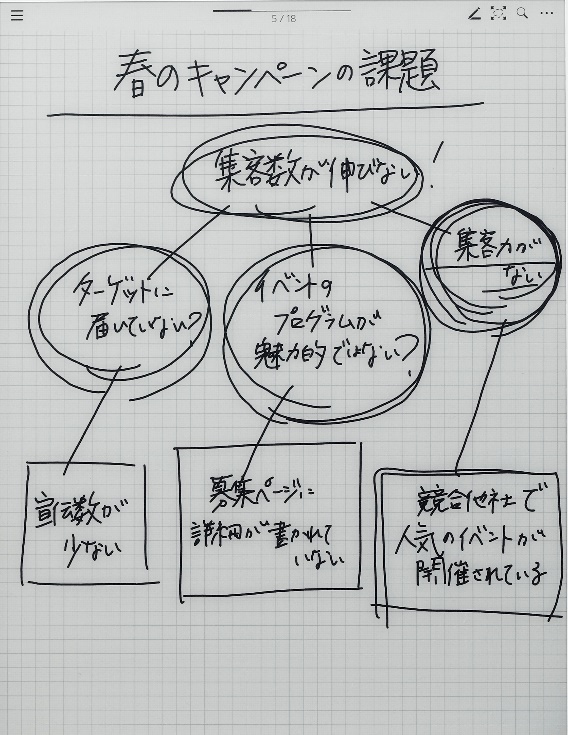 5/18
春のキャンペーンの課題
集客数が伸びない!
ターゲットに
届いていない?
イベントの
プログラムが
魅力的ではない?
集客力が
ない
宣伝数が
少ない
募集ページに
詳細が書かれて
いない
競合他社で
人気のイベントが
開催されている